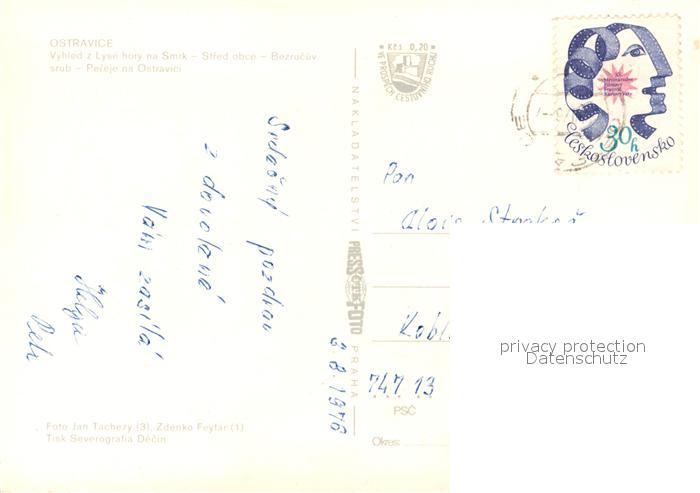 OSTRAVICE
Vyhled z Lysé hory na Smrk – Střed obce – Bezručův
srub – Peřeje na Ostravici
Srdečný pozdrav
z dovolené
Vám zasílá
Helga
Petr
3. 8. 1976
Foto Jan Tachezy (3), Zdenko Feyfar (1)
Tisk Severografia Děčín
NAKLADATELSTVÍ
PRESSFOTO
PRAHA
Kčs 0,20
VE PROSPĚCH CESTOVNÍHO RUCHU
30h
Československo
Pan
Alois
747 13
PSČ
Okres:
privacy protection
Datenschutz